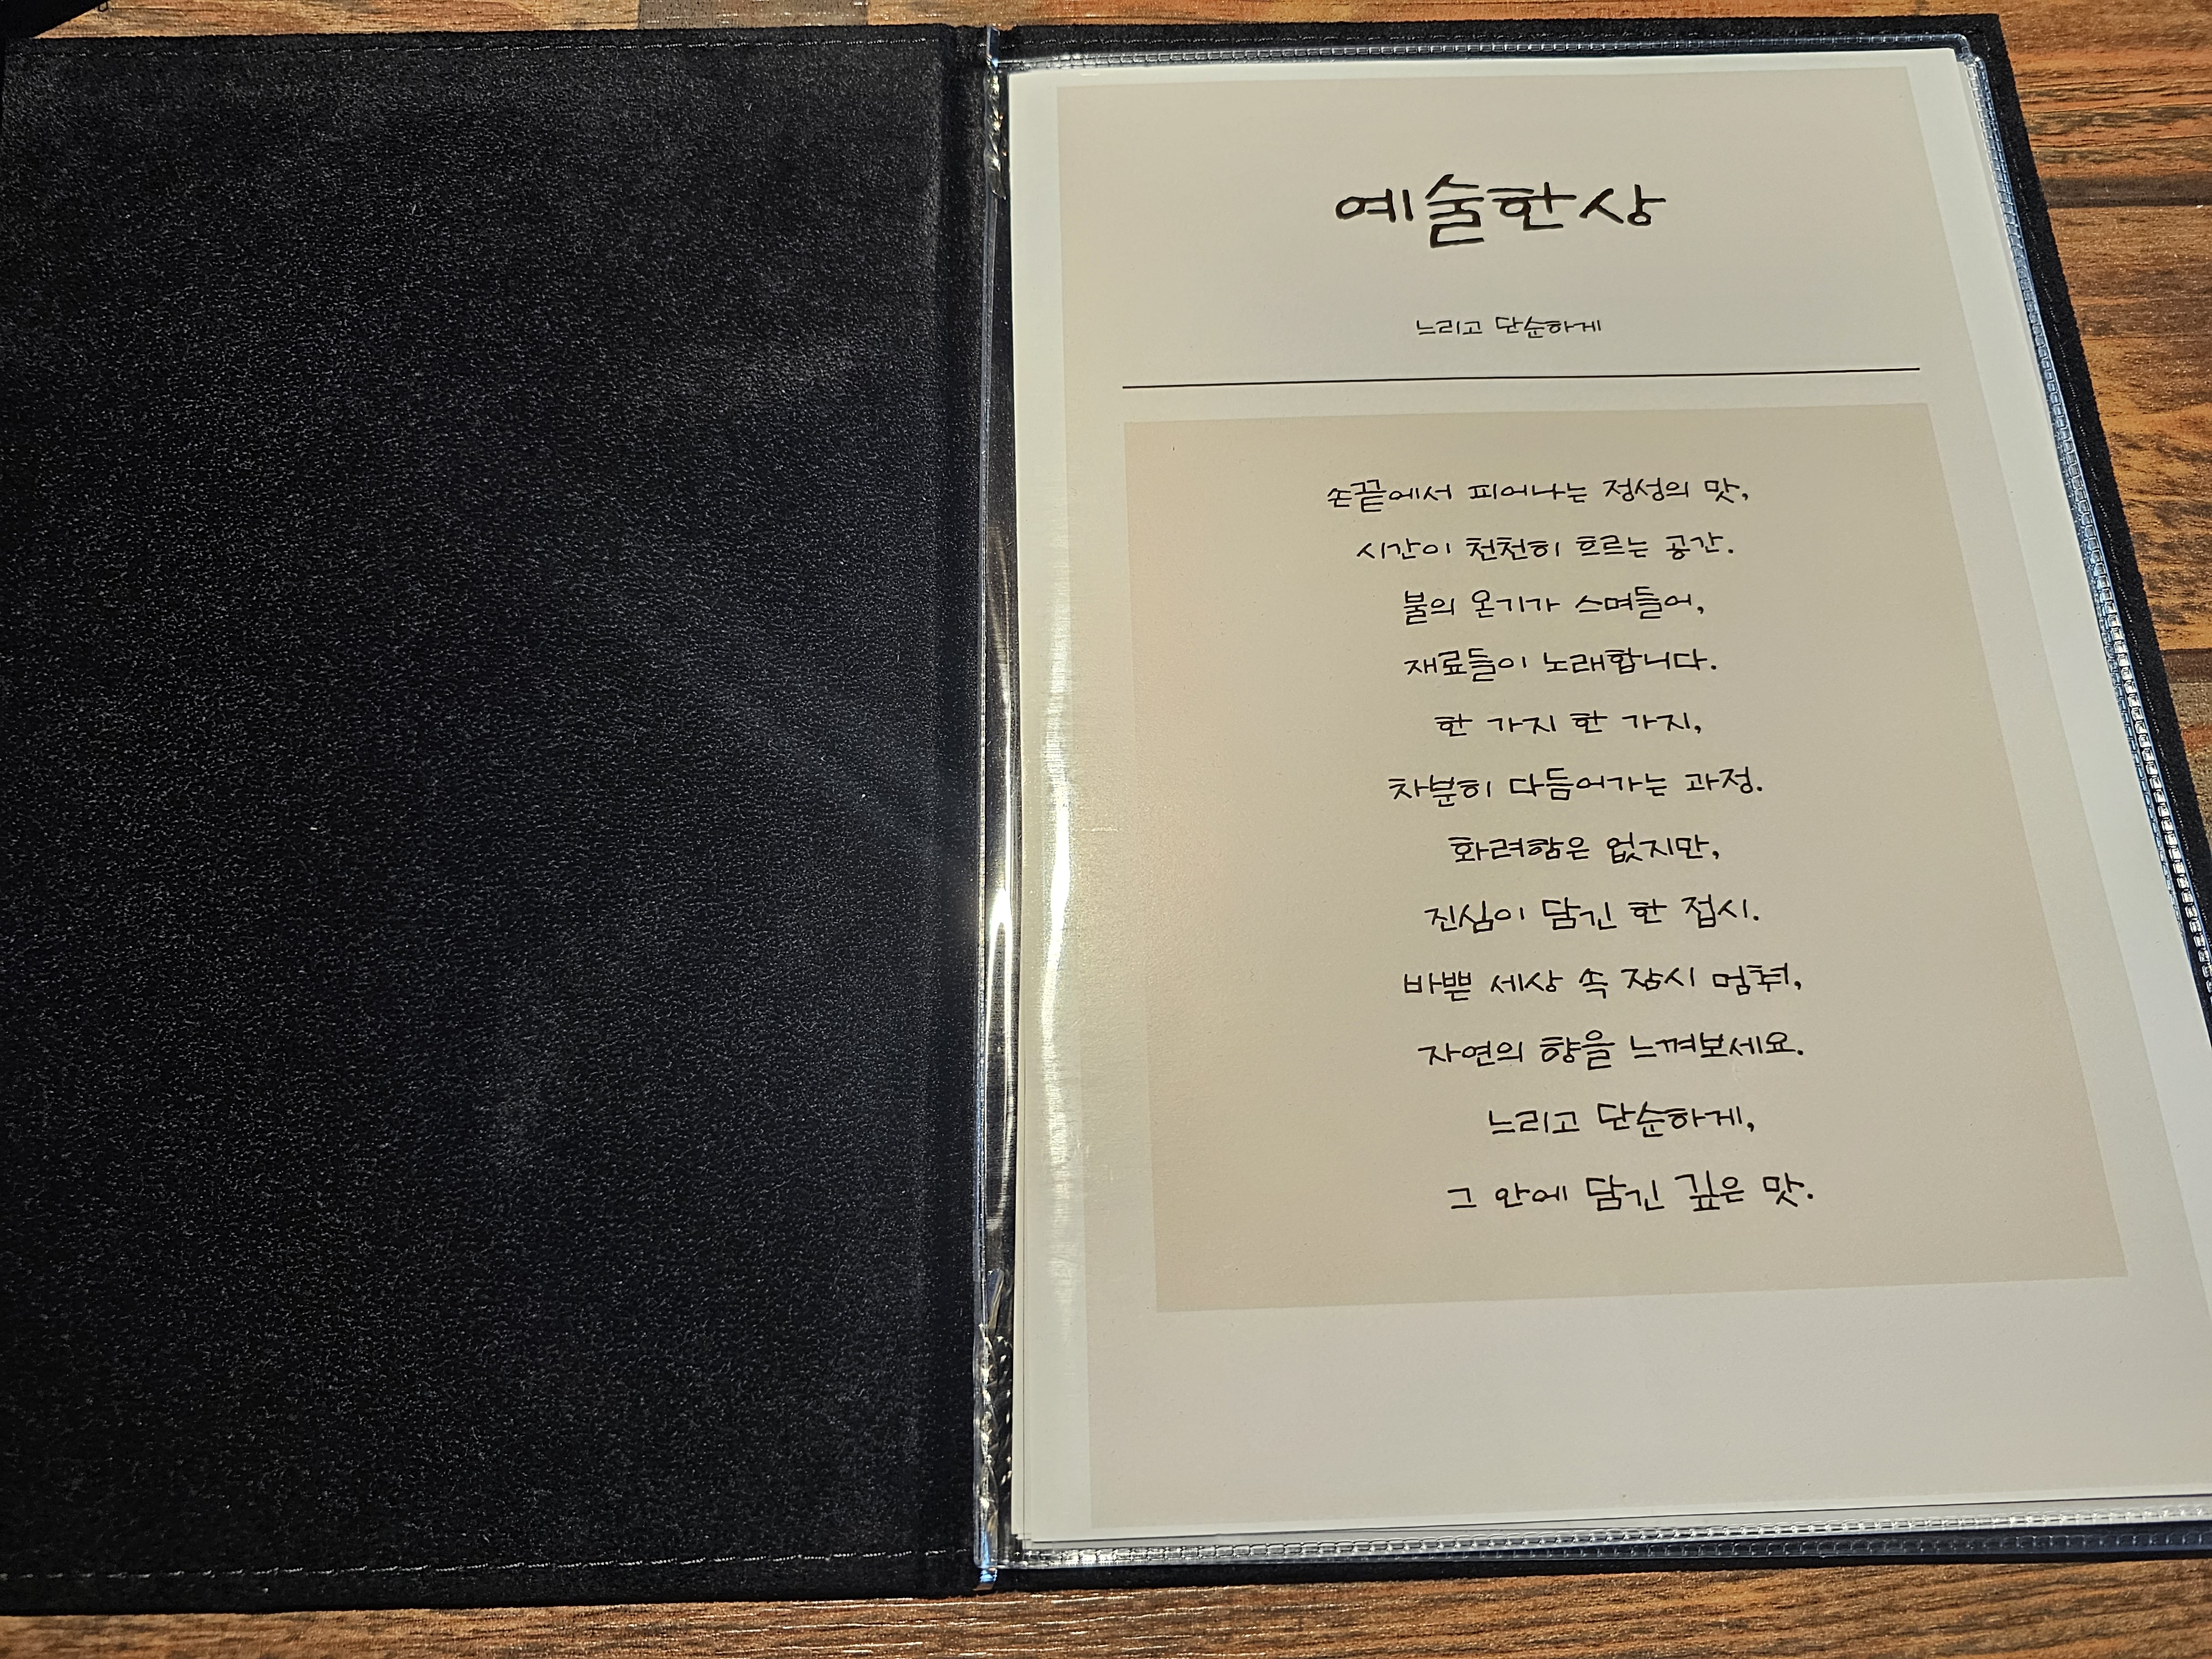 예술한상
느리고 단순하게
손끝에서 피어나는 정성의 맛,
시간이 천천히 흐르는 공간.
불의 온기가 스며들어,
재료들이 노래합니다.
한 가지 한 가지,
차분히 다듬어가는 과정.
화려함은 없지만,
진심이 담긴 한 접시.
바쁜 세상 속 잠시 멈춰,
자연의 향을 느껴보세요.
느리고 단순하게,
그 안에 담긴 깊은 맛.